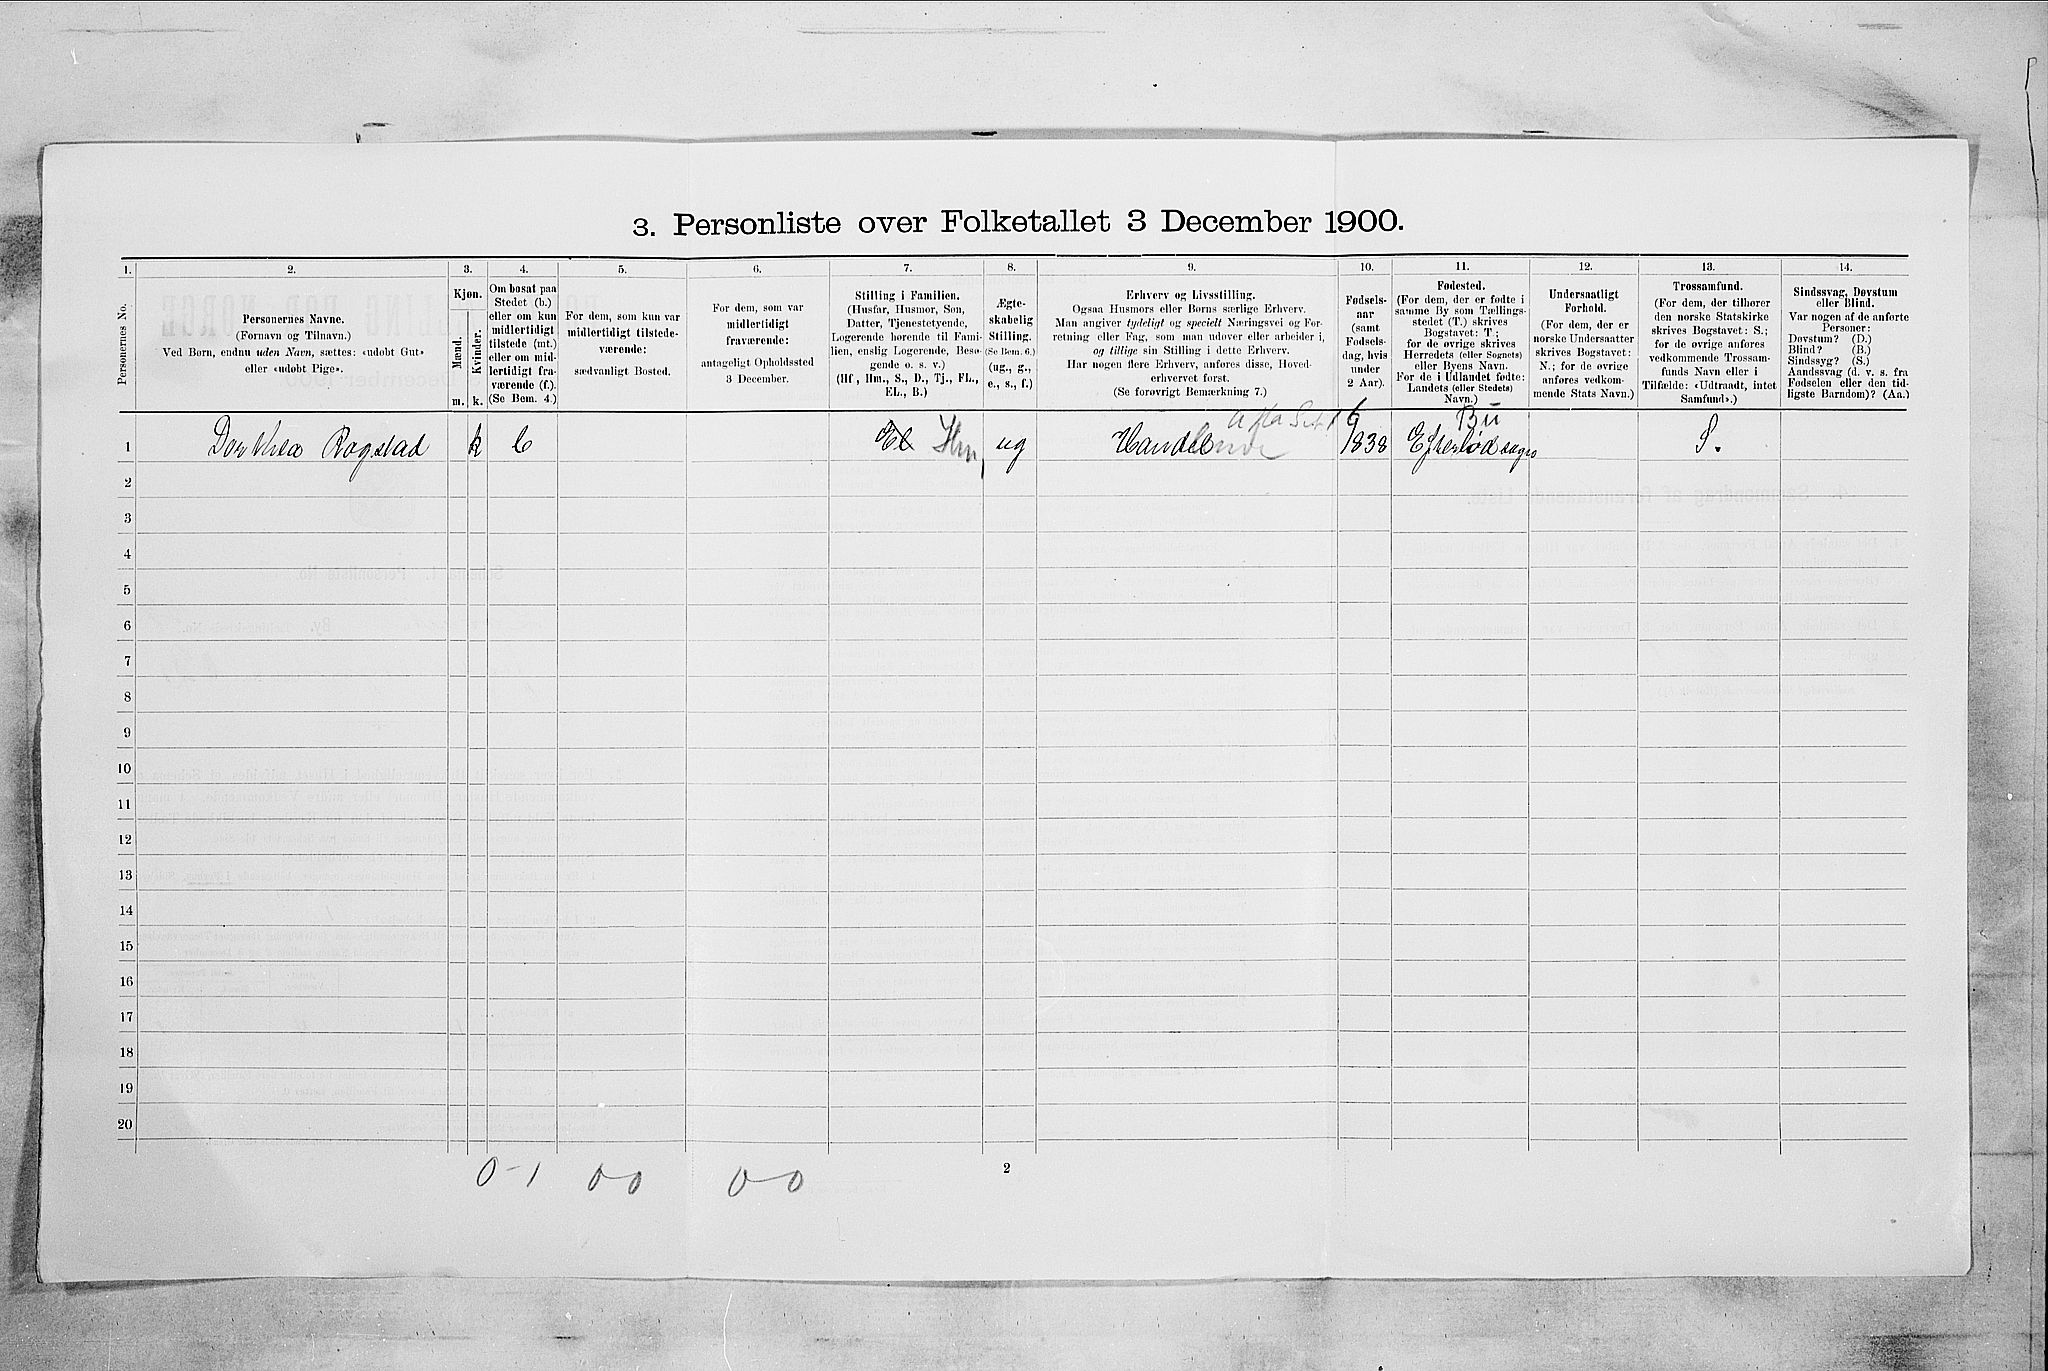 3. Personliste over Folketallet 3 December 1900.
1. 2. 3. 4. 5. 6. 7. 8. 9. 10. 11. 12. 13. 14.
Personernes No.
Personernes Navne.
(Fornavn og Tilnavn.)
Ved Børn, endnu uden Navn, sættes: «udøbt Gut»
eller «udøbt Pige».
Kjøn.
Mænd.
Kvinder.
m. k.
Om bosat paa
Stedet (b.)
eller om kun
midlertidigt
tilstede (mt.)
eller om mid-
lertidigt fra-
værende (f.).
(Se Bem. 4.)
For dem, som kun var
midlertidigt tilstede-
værende:
sædvanligt Bosted.
For dem, som var
midlertidigt
fraværende:
antageligt Opholdssted
3 December.
Stilling i Familien.
(Husfar, Husmor, Søn,
Datter, Tjenestetyende,
Logerende hørende til Fami-
lien, enslig Logerende, Besø-
gende o. s. v.)
(Hf., Hm., S., D., Tj., FL.,
EL., B.)
Ægte-
skabelig
Stilling.
(Se Bem. 6.)
(ug., g.,
e., s., f.)
Erhverv og Livsstilling.
Ogsaa Husmors eller Børns særlige Erhverv.
Man angiver tydeligt og specielt Næringsvei og For-
retning eller Fag, som man udøver eller arbeider i,
og tillige sin Stilling i dette Erhverv.
Har nogen flere Erhverv, anføres disse, Hoved-
erhvervet først.
(Se forøvrigt Bemærkning 7.)
Fødsels-
aar
(samt
Fødsels-
dag, hvis
under
2 Aar).
Fødested.
(For dem, der er fødte i
samme By som Tællings-
stedet (T.) skrives
Bogstavet: T.;
for de øvrige skrives
Herredets (eller Sognets)
eller Byens Navn.
For de i Udlandet fødte:
Landets (eller Stedets)
Navn.)
Undersaatligt
Forhold.
(For dem, der er
norske Undersaatter
skrives Bogstavet:
N.; for de øvrige
anføres vedkom-
mende Stats Navn.)
Trossamfund.
(For dem, der tilhører
den norske Statskirke
skrives Bogstavet: S.;
for de øvrige anføres
vedkommende Trossam-
funds Navn eller i
Tilfælde: «Udtraadt, intet
Samfund».)
Sindssvag, Døvstum
eller Blind.
Var nogen af de anførte
Personer:
Døvstum? (D.)
Blind? (B.)
Sindssyg? (S.)
Aandssvag (d. v. s. fra
Fødselen eller den tid-
ligste Barndom)? (Aa.)
6 Bu
1 Dorthea Rogstad k b El Hm ug Handel 1838 Efterlød sogn S.
2
3
4
5
6
7
8
9
10
11
12
13
14
15
16
17
18
19
20
0-1 00 0-0
2